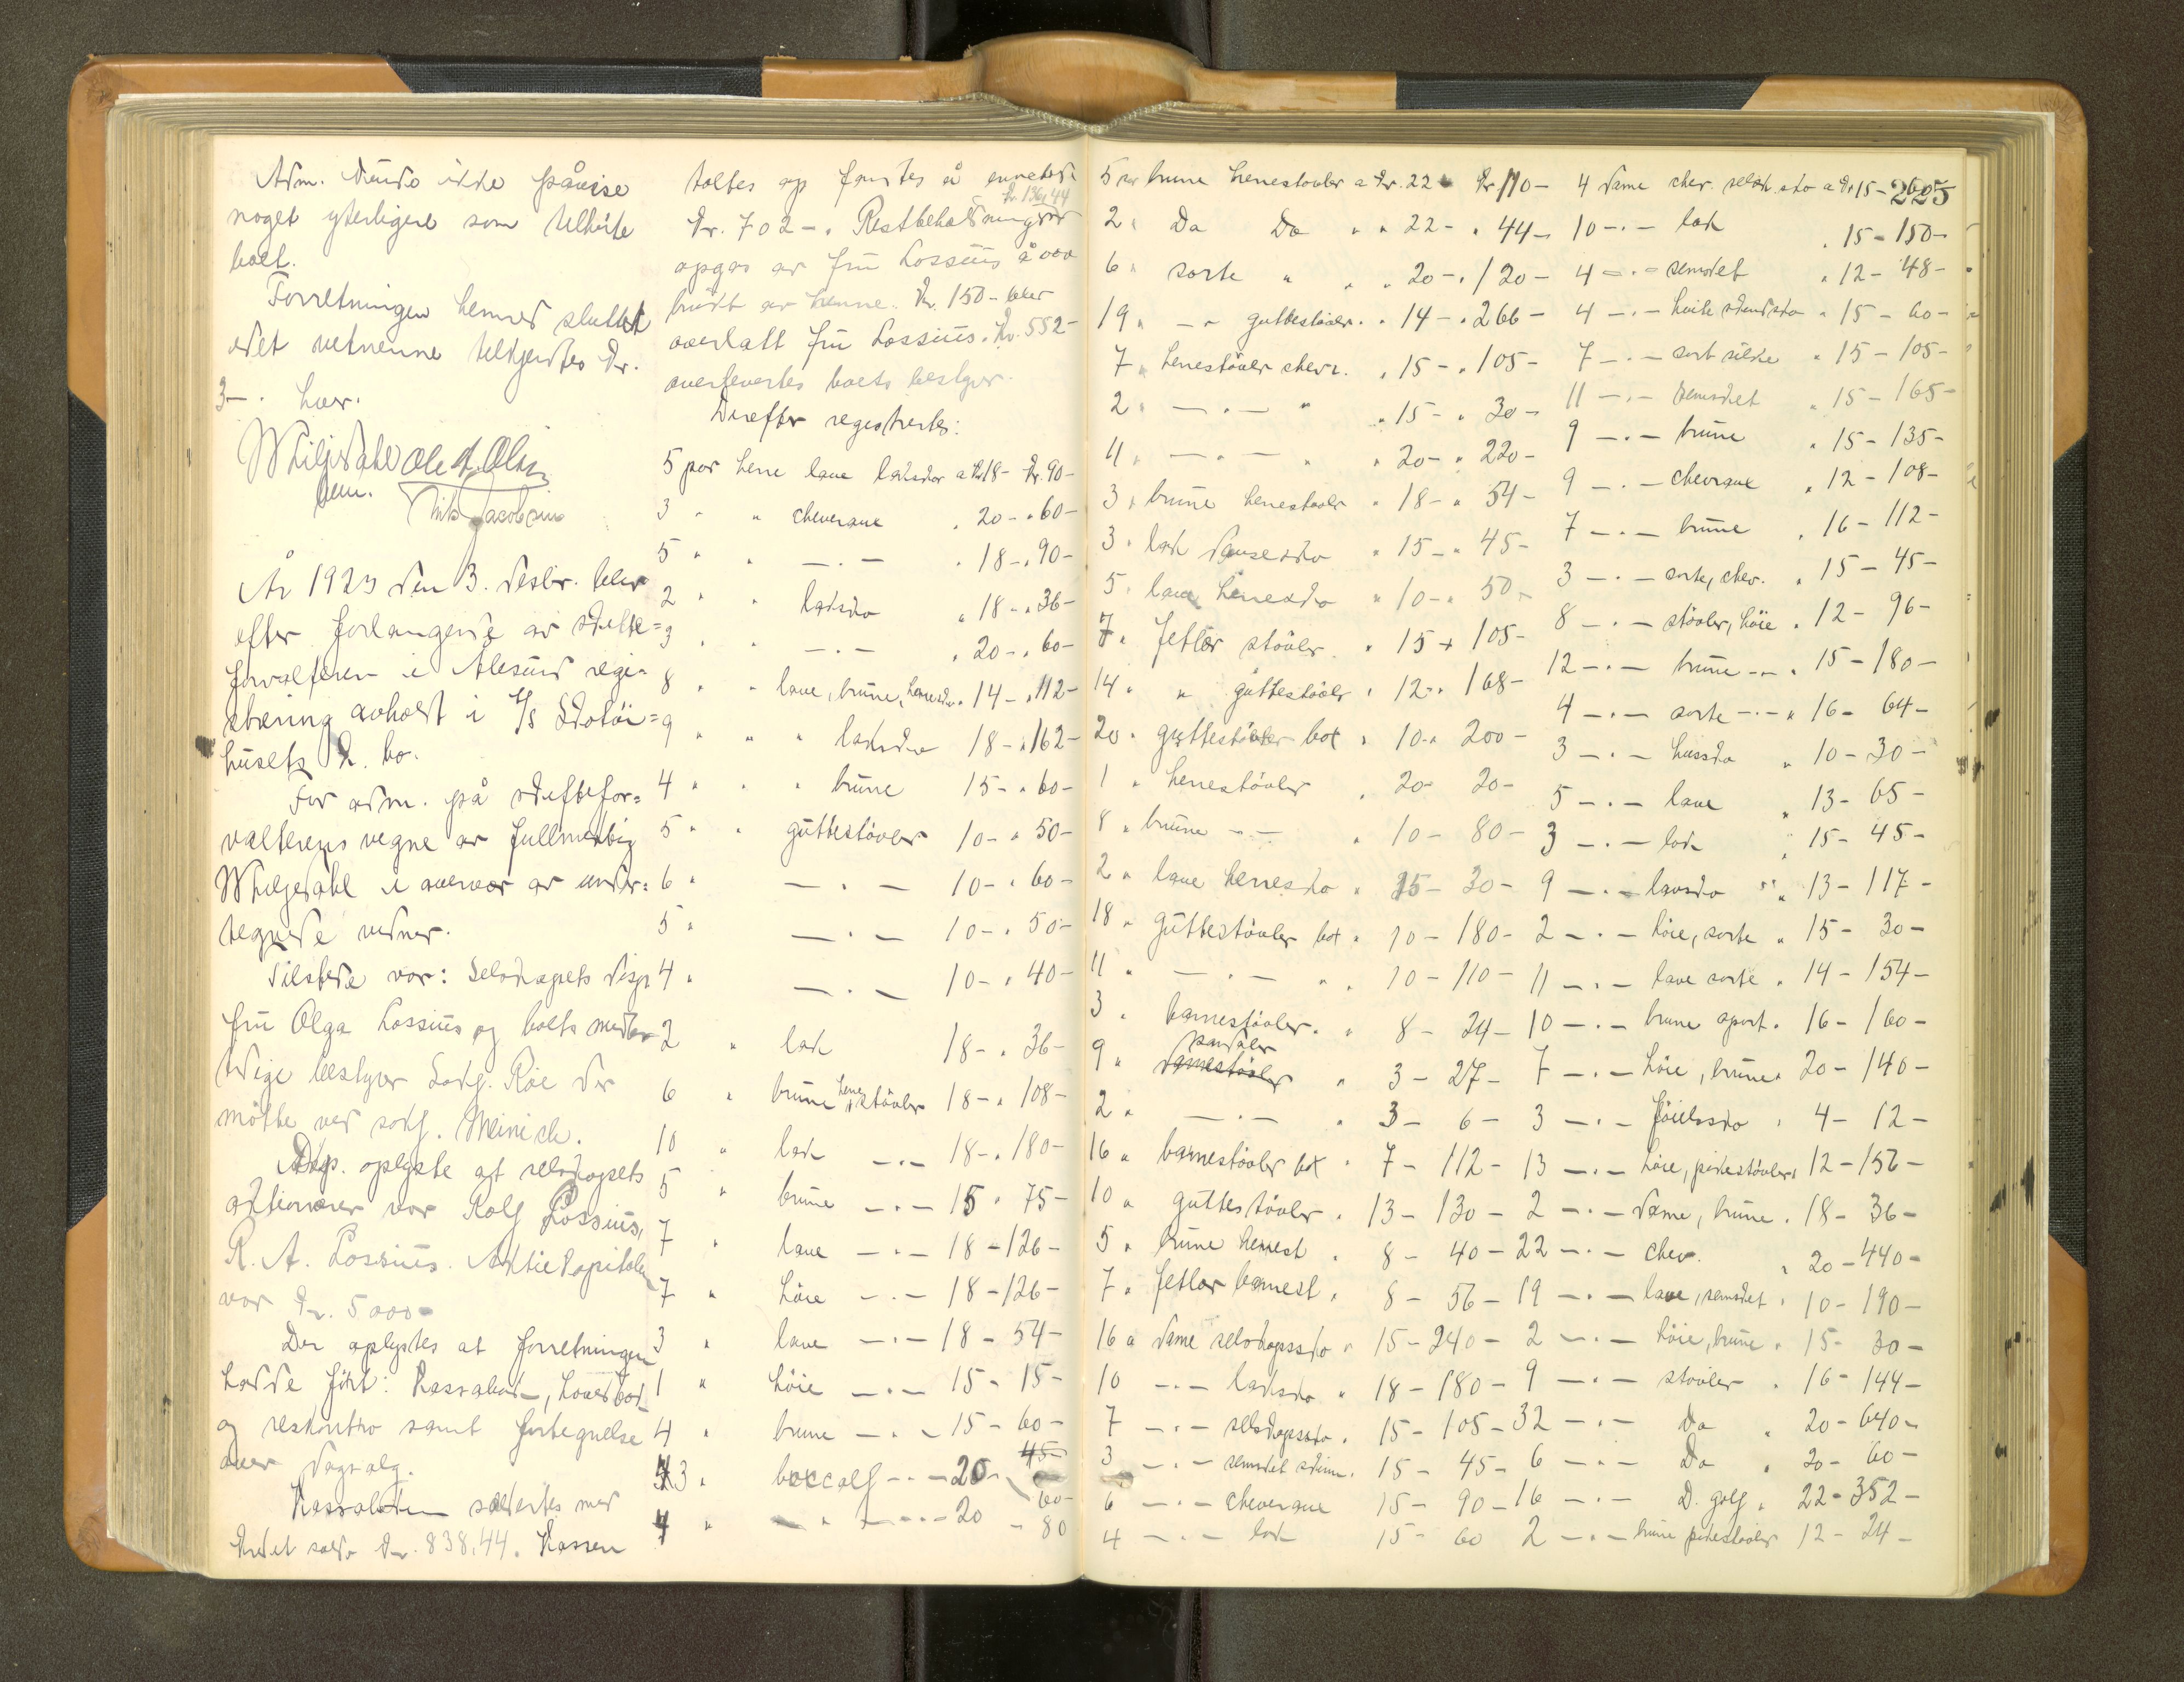 Adm. kunde ikke påvise
noget yterligere som tilhörte
boet.
Forretningen hermed sluttet
idet vitnerne tilkjendtes kr.
3-. hver.
W Liljedahl Ole A. Olsen
Jacobsen
År 1923 den 3. desbr. blev
efter forlangende av skifte=
forvalteren i Ålesund regi=
strering avholdt i A/S Skotöi=
husets k. bo.
For adm. på skiftefor=
valterens vegne av fullmektig
W Liljedahl i overvær av under=
tegnede vidner.
Tilstede var: Selskapets disp.
fru Olga Lossius og boets midler
tidige bestyrer Sakf. Röe der
mötte ved sakf. Meinich.
Disp. oplyste at selskapets
aktionærer var Rolf Lossius,
R. A. Lossius. Aktiekapitalen
var kr. 5000-
Der oplystes at forretningen
hadde fört: Kassabok, hovedbok
og reskontro samt fortegnelse
over dagsalg.
Kassaboken saldertes med
kredit saldo kr. 838,44. Kassen
taltes op fantes å inneholde
kr. 136,44
kr. 702-. Restbeholdningen
opgas av fru Lossius å
brukt av henne. Kr. 150- blev
overlatt fru Lossius. Kr. 552-
overlevertes boets bestyrer.
Derefter registrertes:
5 par herre lave laksko a kr. 18- kr. 90-
3 " " cheveraue " 20- " 60-
5 " " -"- " 18- " 90-
2 " " laksko " 18- " 36-
3 " " -"- " 20- " 60-
8 " " lave, brune, herresko " 14- " 112-
9 " " " laksko 18- " 162-
4 " " " brune 15- " 60-
5 " " guttestövler 10- " 50-
6 " -"- 10- " 60-
5 " -"- 10- " 50-
4 " -"- 10- " 40-
2 " lak 18- " 36-
6 " brune herrestövler 18- " 108-
10 " lak -"- 18- " 180-
5 " brune -"- 15 " 75-
7 " lave -"- 18- 126-
7 " höie -"- 18- 126-
3 " lave -"- 18- 54-
1 " höie -"- 15- 15-
4 " brune -"- 15- 60-
45-
3 " boxcalf -"- 20- 60-
4 " -"- -"- 20 - 80
5 par brune herrestövler a kr. 22 kr. 110-
2 " Do Do " " 22- " 44-
6 " sorte " " " 20- " 120-
19 " -"- guttestövler " 14- " 266-
7 " herrestövler chevr. " 15- " 105-
2 " -"- " " 15- " 30-
11 " -"- " " 20- " 220-
3 " brune herrestövler " 18- " 54-
3 " lak dansesko " 15- " 45-
5 " lave herresko " 10- " 50-
7 " fetlær stövler " 15 " 105-
14 " " guttestövler " 12- " 168-
20 " guttestövler box " 10- " 200-
1 " herrestövler " 20- 20-
8 " brune -"- " 10- 80-
2 " lave herresko " 15- 30-
18 " guttestövler box " 10- 180-
11 " -"- " " 10- 110-
3 " barnestövler " " 8- 24-
9 " sandaler " 3- 27-
2 " -"- " 3- 6-
16 " barnestövler box " 7- 112-
10 " guttestövler " 13- 130-
5 " brune herrest " 8- 40-
7 " fetlær barnest " 8- 56-
16 " dame selskapssko " 15- 240-
10 -"- laksko " 18- 180-
7 -"- selskapssko " 15- 105-
3 -"- semsket skinn " 15- 45-
6 -"- cheveraue 15- 90-
4 -"- lak 15- 60
225
4 dame chev. selsk. sko a kr 15- 60-
10 -"- lak " 15- 150-
4 -"- semsket " 12- 48-
4 -"- hvite " 15- 60-
7 -"- sort silke " 15- 105-
11 -"- semsket " 15- 165-
9 -"- brune " 15- 135-
9 -"- cheveraue " 12- 108-
7 -"- brune " 16- 112-
3 -"- sorte, chev. " 15- 45-
8 -"- stövler, höie " 12- 96-
12 -"- brune -"- " 15- 180-
4 -"- sorte -"- " 16- 64-
3 -"- hussko " 10- 30-
5 -"- lave " 13- 65-
3 -"- lak " 15- 45-
9 -"- lavsko " 13- 117-
2 -"- höie, sorte " 15- 30-
11 -"- lave sorte " 14- 154-
10 -"- brune sport " 16- 160-
7 -"- höie, brune " 20- 140-
3 -"- föielssko " 4- 12-
13 -"- höie, pikestövler " 12- 156-
2 -"- dame, brune " 18- 36-
22 -"- chev. " 20- 440-
19 -"- lave, semsket " 10- 190-
2 -"- höie, brune " 15- 30-
9 -"- stövler " 16- 144-
32 -"- Do " 20- 640-
6 -"- Do " 20- 60-
16 -"- D. golf " 22- 352-
2 -"- brune pikestövler 12- 24-